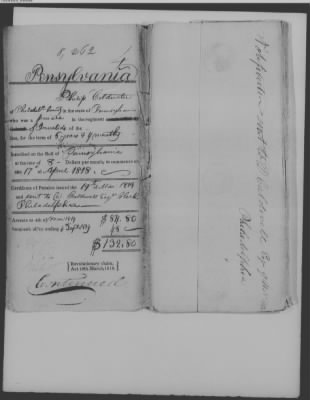 8,262
Pennsylvania
Philip Coldwater
of Philadelᵃ County in the state of Pennsylvania
who was a private in the regiment
of Invalids of the
line, for the term of 5 years & 9 months
Inscribed on the Roll of Pennsylvania
at the rate of 8 Dollars per month, to commence on
the 17th of April 1818.
Certificate of Pension issued the 19th of Mar 1819
and sent to
Philadelphia
Arrears to 4th of Mar 1819 $84.80
Semi-anl. all'ce ending 4 Sept 1819 48
$132.80
Revolutionary claim,
Act 18th March, 1818.
Continued
Notification sent to
Philadelphia